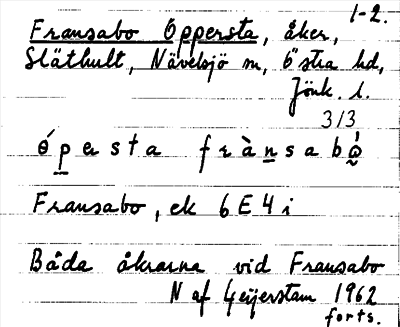 1-2.
Fransabo Oppersta, åker,
Släthult, Nävelsjö sn, Östra hd,
Jönk. l.
3/3
ópersta frànsabò̰
Fransabo, ek 6E4i
Båda åkrarna vid Fransabo
N af Geijerstam 1962
forts.